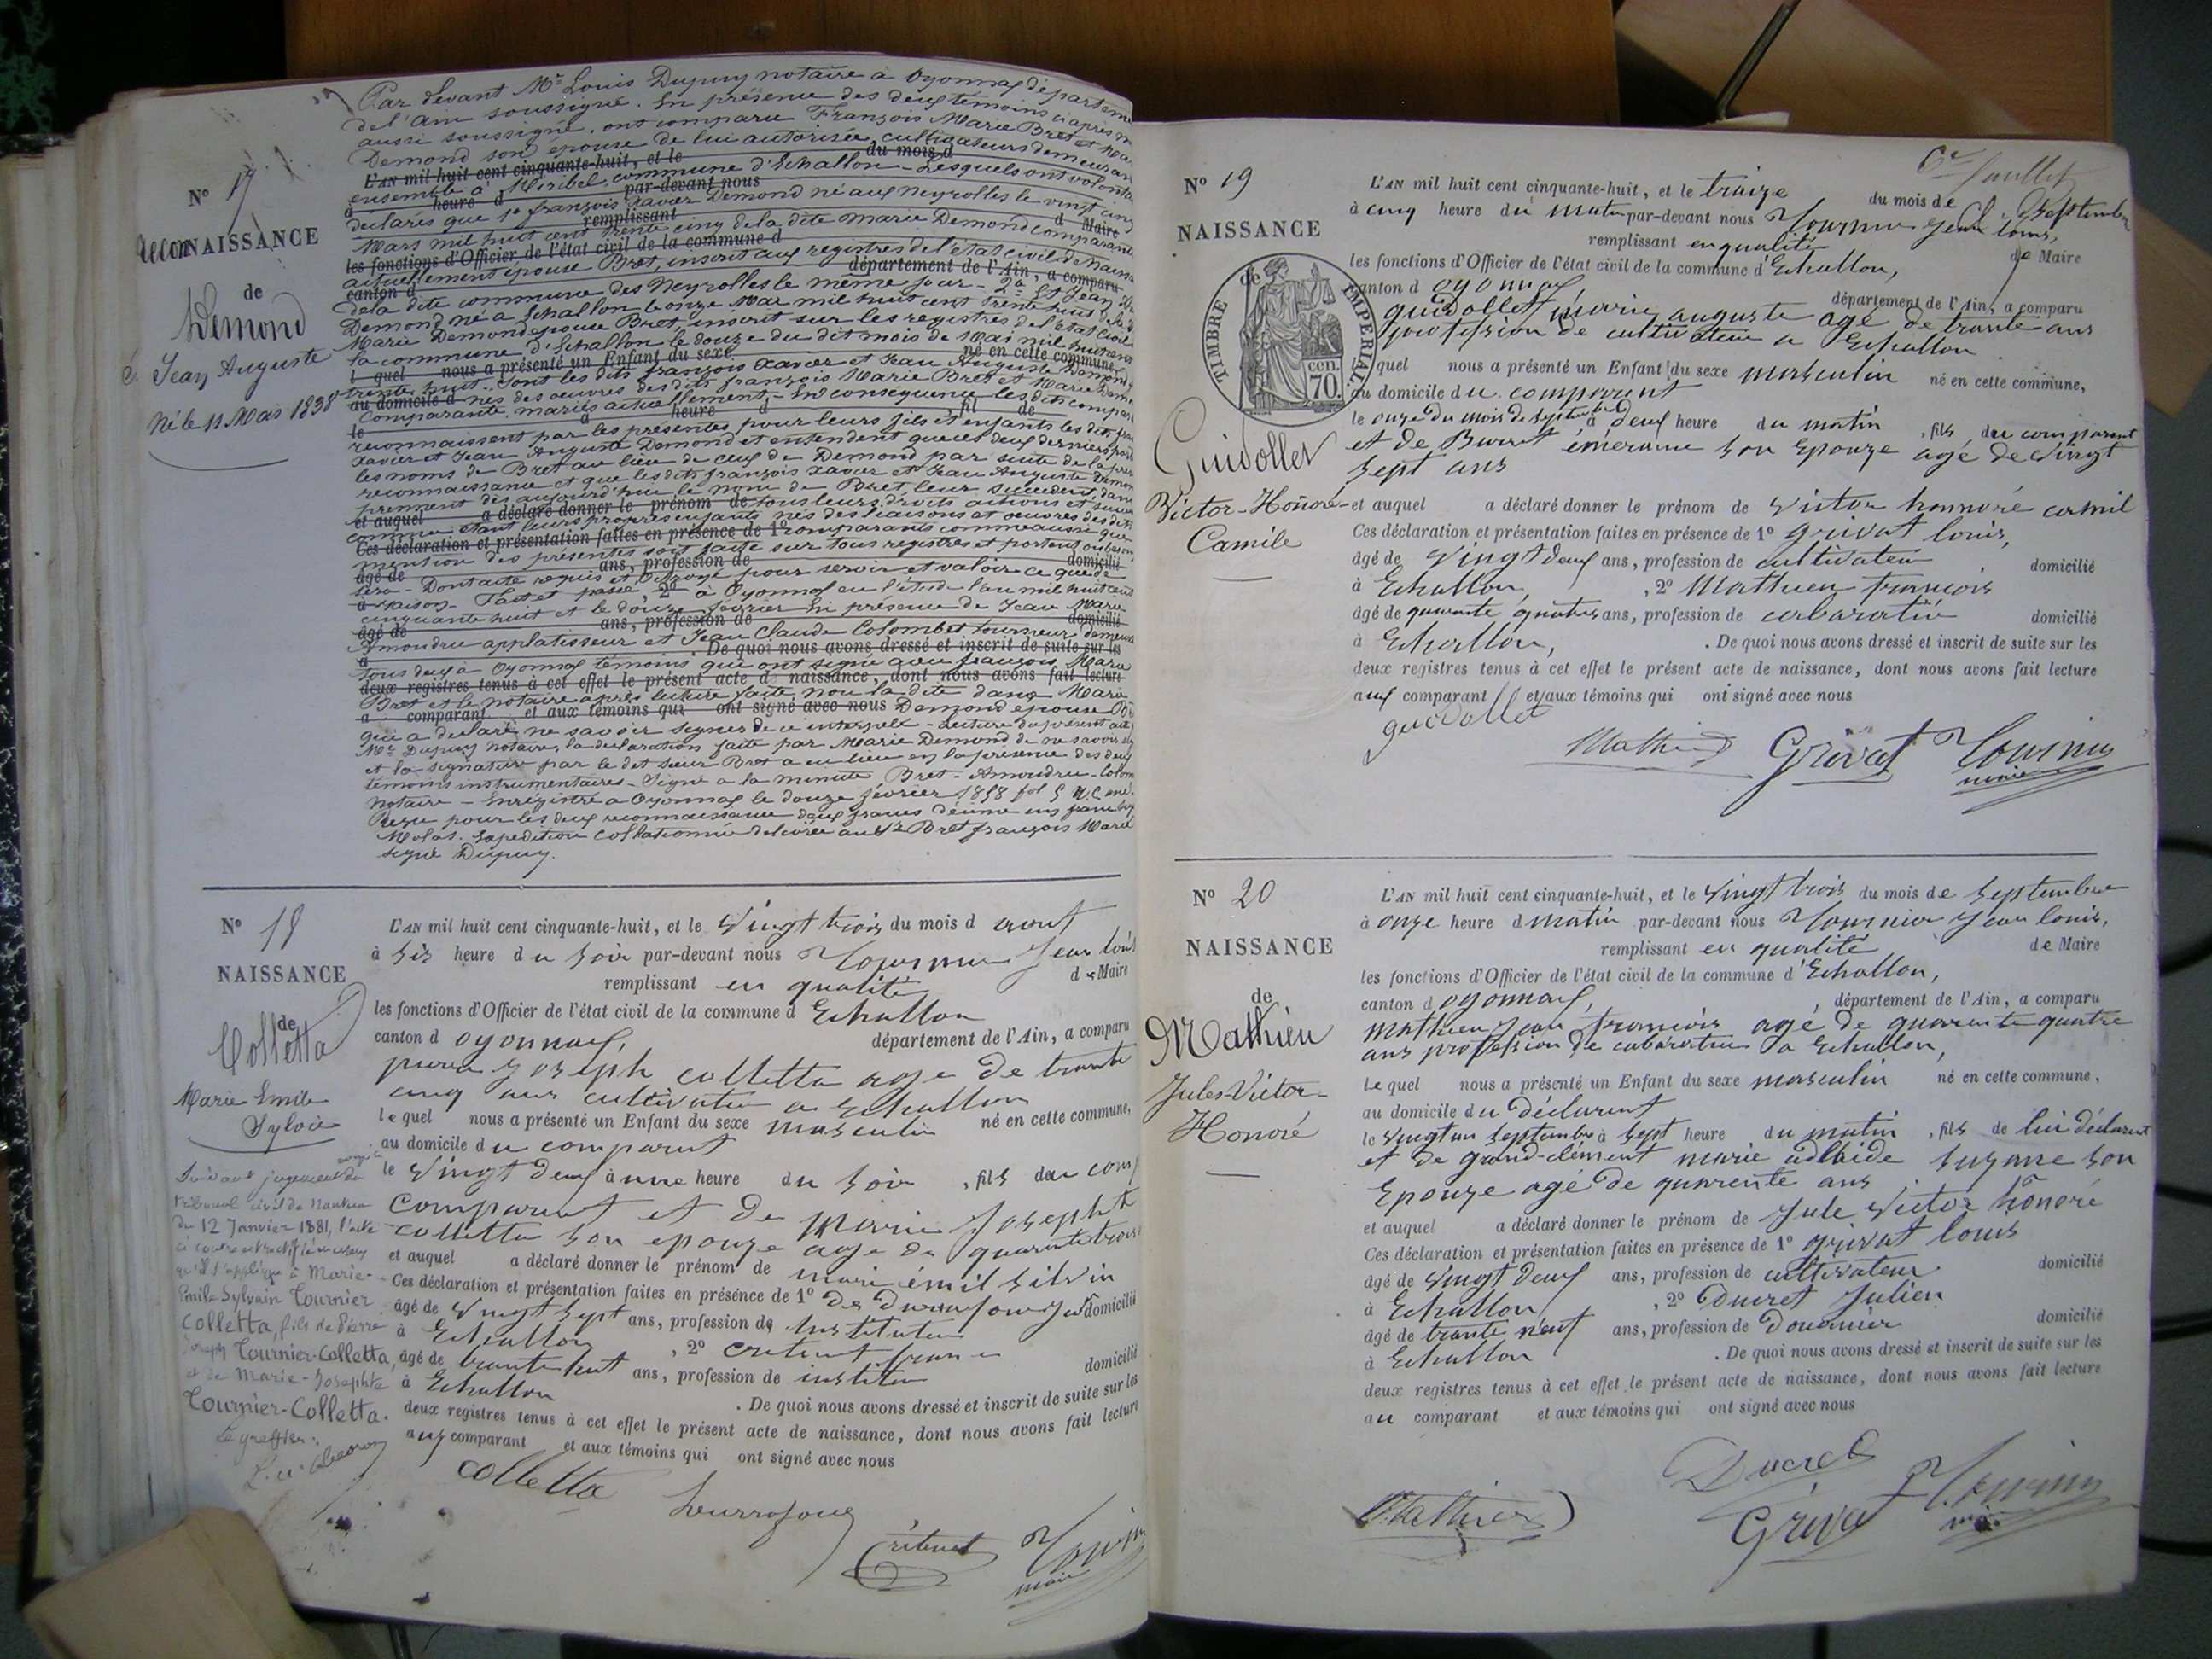 Par devant Me Louis Dupuy notaire à Oyonnax départeme
de l'ain soussigné. En présence des deux témoins ci après n
aussi soussigné, ont comparu François Marie Bret et Ma
Demond son epouse de lui autorisée, cultivateurs demeuran
L'AN mil huit cent cinquante-huit, et le du mois d
ensemble à Miribel, commune d'Echallon - Lesquels ont volonta
à heure d par-devant nous
déclarés que 1o françois Xavier Demond né aux Neyrolles le vingt cinq
remplissant d Maire
Mars mil huit cent trente cinq de la dite Marie Demond comparante
les fonctions d'Officier de l'état civil de la commune d
actuellement épouse Bret, inscrit aux registres de l'état civil de naiss
canton d département de l'Ain, a comparu
de la dite commune des Neyrolles le même jour - 2o Et Jean
Demond né à Echallon le onze Mai mil huit cent trente huit de la d
Marie Demond epouse Bret inscrit sur les registres de l'état civil
la commune d'Echallon le douze du dit mois de Mai mil huit cent
l quel nous a présenté un Enfant du sexe né en cette commune,
trente huit. Sont les dits françois Xavier et Jean Auguste Demond
au domicile d nés des oeuvres des dits françois Marie Bret et Marie Dem
Comparante, mariés actuellement - En conséquence les dits compar
le à heure d fil de
reconnaissent par les présentes pour leurs fils et enfants les dits fra
Xavier et Jean Auguste Demond et entendent que ces deux derniers port
les noms de Bret au lieu de ceux de Demond par suite de la prés
reconnaissance et que les dits françois Xavier et Jean Auguste Demon
prennent dès aujourd'hui le nom de Bret leur succedent dans
et auquel a déclaré donner le prénom de tous leurs droits actions et
comme étant leurs propres enfants nés des liaisons et oeuvres des dits
Ces déclaration et présentation faites en présence de 1o comparants
mention des présentes soit faite sur tous registres et partout ou besoin
âgé de ans, profession de domicilié
sera - Dont acte requis et octroyé pour servir et valoir ce que de
à raison - Fait et passé, 2o à Oyonnax en l'étude l'an mil huit cent
cinquante huit et le douze février En présence de Jean Marie
âgé de ans, profession de domicilié
Amoudru applatisseur et Jean Claude Colombet tourneur demeura
à De quoi nous avons dressé et inscrit de suite sur les
tous deux à Oyonnax témoins qui ont signé avec françois Marie
deux registres tenus à cet effet le présent acte d naissance, dont nous avons fait lecture
Bret et le notaire après lecture faite, non la dite dame Marie
a comparant et aux témoins qui ont signé avec nous Demond epouse B
qui a déclaré ne savoir signer de ce interpelé - Lecture du présent acte
Me Dupuy notaire, la declaration faite par Marie Demond de ne savoir
et la signature par le dit sieur Bret a eu lieu en la présence des deux
témoins instrumentaires - Signé à la minute Bret - Amoudru - Colom
Notaire - Enregistré à Oyonnax le douze février 1858 fol 5
Reçu pour les deux reconnaissance deux francs
Expedition Collationnée delivrée au Sr Bret françois Marie
signé Dupuy.
No 17
reconNAISSANCE
de
Demond
Jean Auguste
Né le 11 Mai 1838
No 18
NAISSANCE
de
Colletta
Marie Emile
Sylvain
Suivant jugement du
tribunal civil de Nantua
du 12 Janvier 1881, l'acte
ci contre est rectifié
qu'il s'applique à Marie-
Emile Sylvain Tournier
Colletta, fils de Pierre
Joseph Tournier-Colletta,
et de Marie-Josephte
Tournier-Colletta.
Le greffier:
L'AN mil huit cent cinquante-huit, et le Vingt trois du mois d aout
à Six heure du Soir par-devant nous Tournier Jean louis
remplissant en qualité de Maire
les fonctions d'Officier de l'état civil de la commune d Echallon
canton d oyonnax, département de l'Ain, a comparu
pierre Joseph colletta age de trante
cinq ans cultivateur a Echallon
lequel nous a présenté un Enfant du sexe masculin né en cette commune,
au domicile du comparent
le Vingt deux à une heure du Soir, fils du com
comparent et de marie Josephte
colletta son epouze age de quarente trois
et auquel a déclaré donner le prénom de marie émil silvin
Ces déclaration et présentation faites en présence de 1o
âgé de Vingt sept ans, profession de instituteur domicilié
à Echallon, 2o critenet fran
âgé de trante huit ans, profession de instituteur domicilié
à Echallon. De quoi nous avons dressé et inscrit de suite sur les
deux registres tenus à cet effet le présent acte de naissance, dont nous avons fait lecture
aux comparant et aux témoins qui ont signé avec nous
colletta
Critenet
Tournier
maire
6e Juillet
No 19
NAISSANCE
de
TIMBRE IMPERIAL
70 cen.
Guidollet
Victor-Honoré-
Camile
L'AN mil huit cent cinquante-huit, et le traize du mois de Septembre
à cinq heure du matin par-devant nous Tournier Jean louis,
remplissant en qualité de Maire
les fonctions d'Officier de l'état civil de la commune d'Echallon,
canton d oyonnax, département de l'Ain, a comparu
guidollet marie auguste agé de trante ans
profession de cultivateur a Echallon
quel nous a présenté un Enfant du sexe masculin né en cette commune,
au domicile du comparent
le onze du mois de septembre à deux heure du matin, fils du comparent
et de Burret émeranne son Epouze agé de Vingt
sept ans
et auquel a déclaré donner le prénom de Victor honnoré camil
Ces déclaration et présentation faites en présence de 1o grivat louis,
âgé de Vingt deux ans, profession de cultivateur domicilié
à Echallon, 2o Mathieu francois
âgé de quarente quatre ans, profession de cabaratié domicilié
à Echallon, . De quoi nous avons dressé et inscrit de suite sur les
deux registres tenus à cet effet le présent acte de naissance, dont nous avons fait lecture
aux comparant et aux témoins qui ont signé avec nous
guidollet
Mathieu Grivat Tournier
maire
No 20
NAISSANCE
de
Mathieu
Jules-Victor-
Honoré
L'AN mil huit cent cinquante-huit, et le Vingt trois du mois de Septembre
à onze heure d matin par-devant nous Tournier Jean louis,
remplissant en qualité de Maire
les fonctions d'Officier de l'état civil de la commune d'Echallon,
canton d oyonnax, département de l'Ain, a comparu
mathieu Jean francois agé de quarente quatre
ans profession de cabaratier a Echallon,
lequel nous a présenté un Enfant du sexe masculin né en cette commune,
au domicile du Déclarent
le Vingt un Septembre à Sept heure du matin, fils de lui déclarent
et de grand-clément marie adlaide Suzanne son
Epouze agé de quarente ans
et auquel a déclaré donner le prénom de Jule Victor honoré
Ces déclaration et présentation faites en présence de 1o grivat louis
âgé de Vingt deux ans, profession de cultivateur domicilié
à Echallon, 2o Ducret Julien
âgé de trante neuf ans, profession de Douannier domicilié
à Echallon. De quoi nous avons dressé et inscrit de suite sur les
deux registres tenus à cet effet le présent acte de naissance, dont nous avons fait lecture
au comparant et aux témoins qui ont signé avec nous
Ducret
Mathieu Grivat Tournier